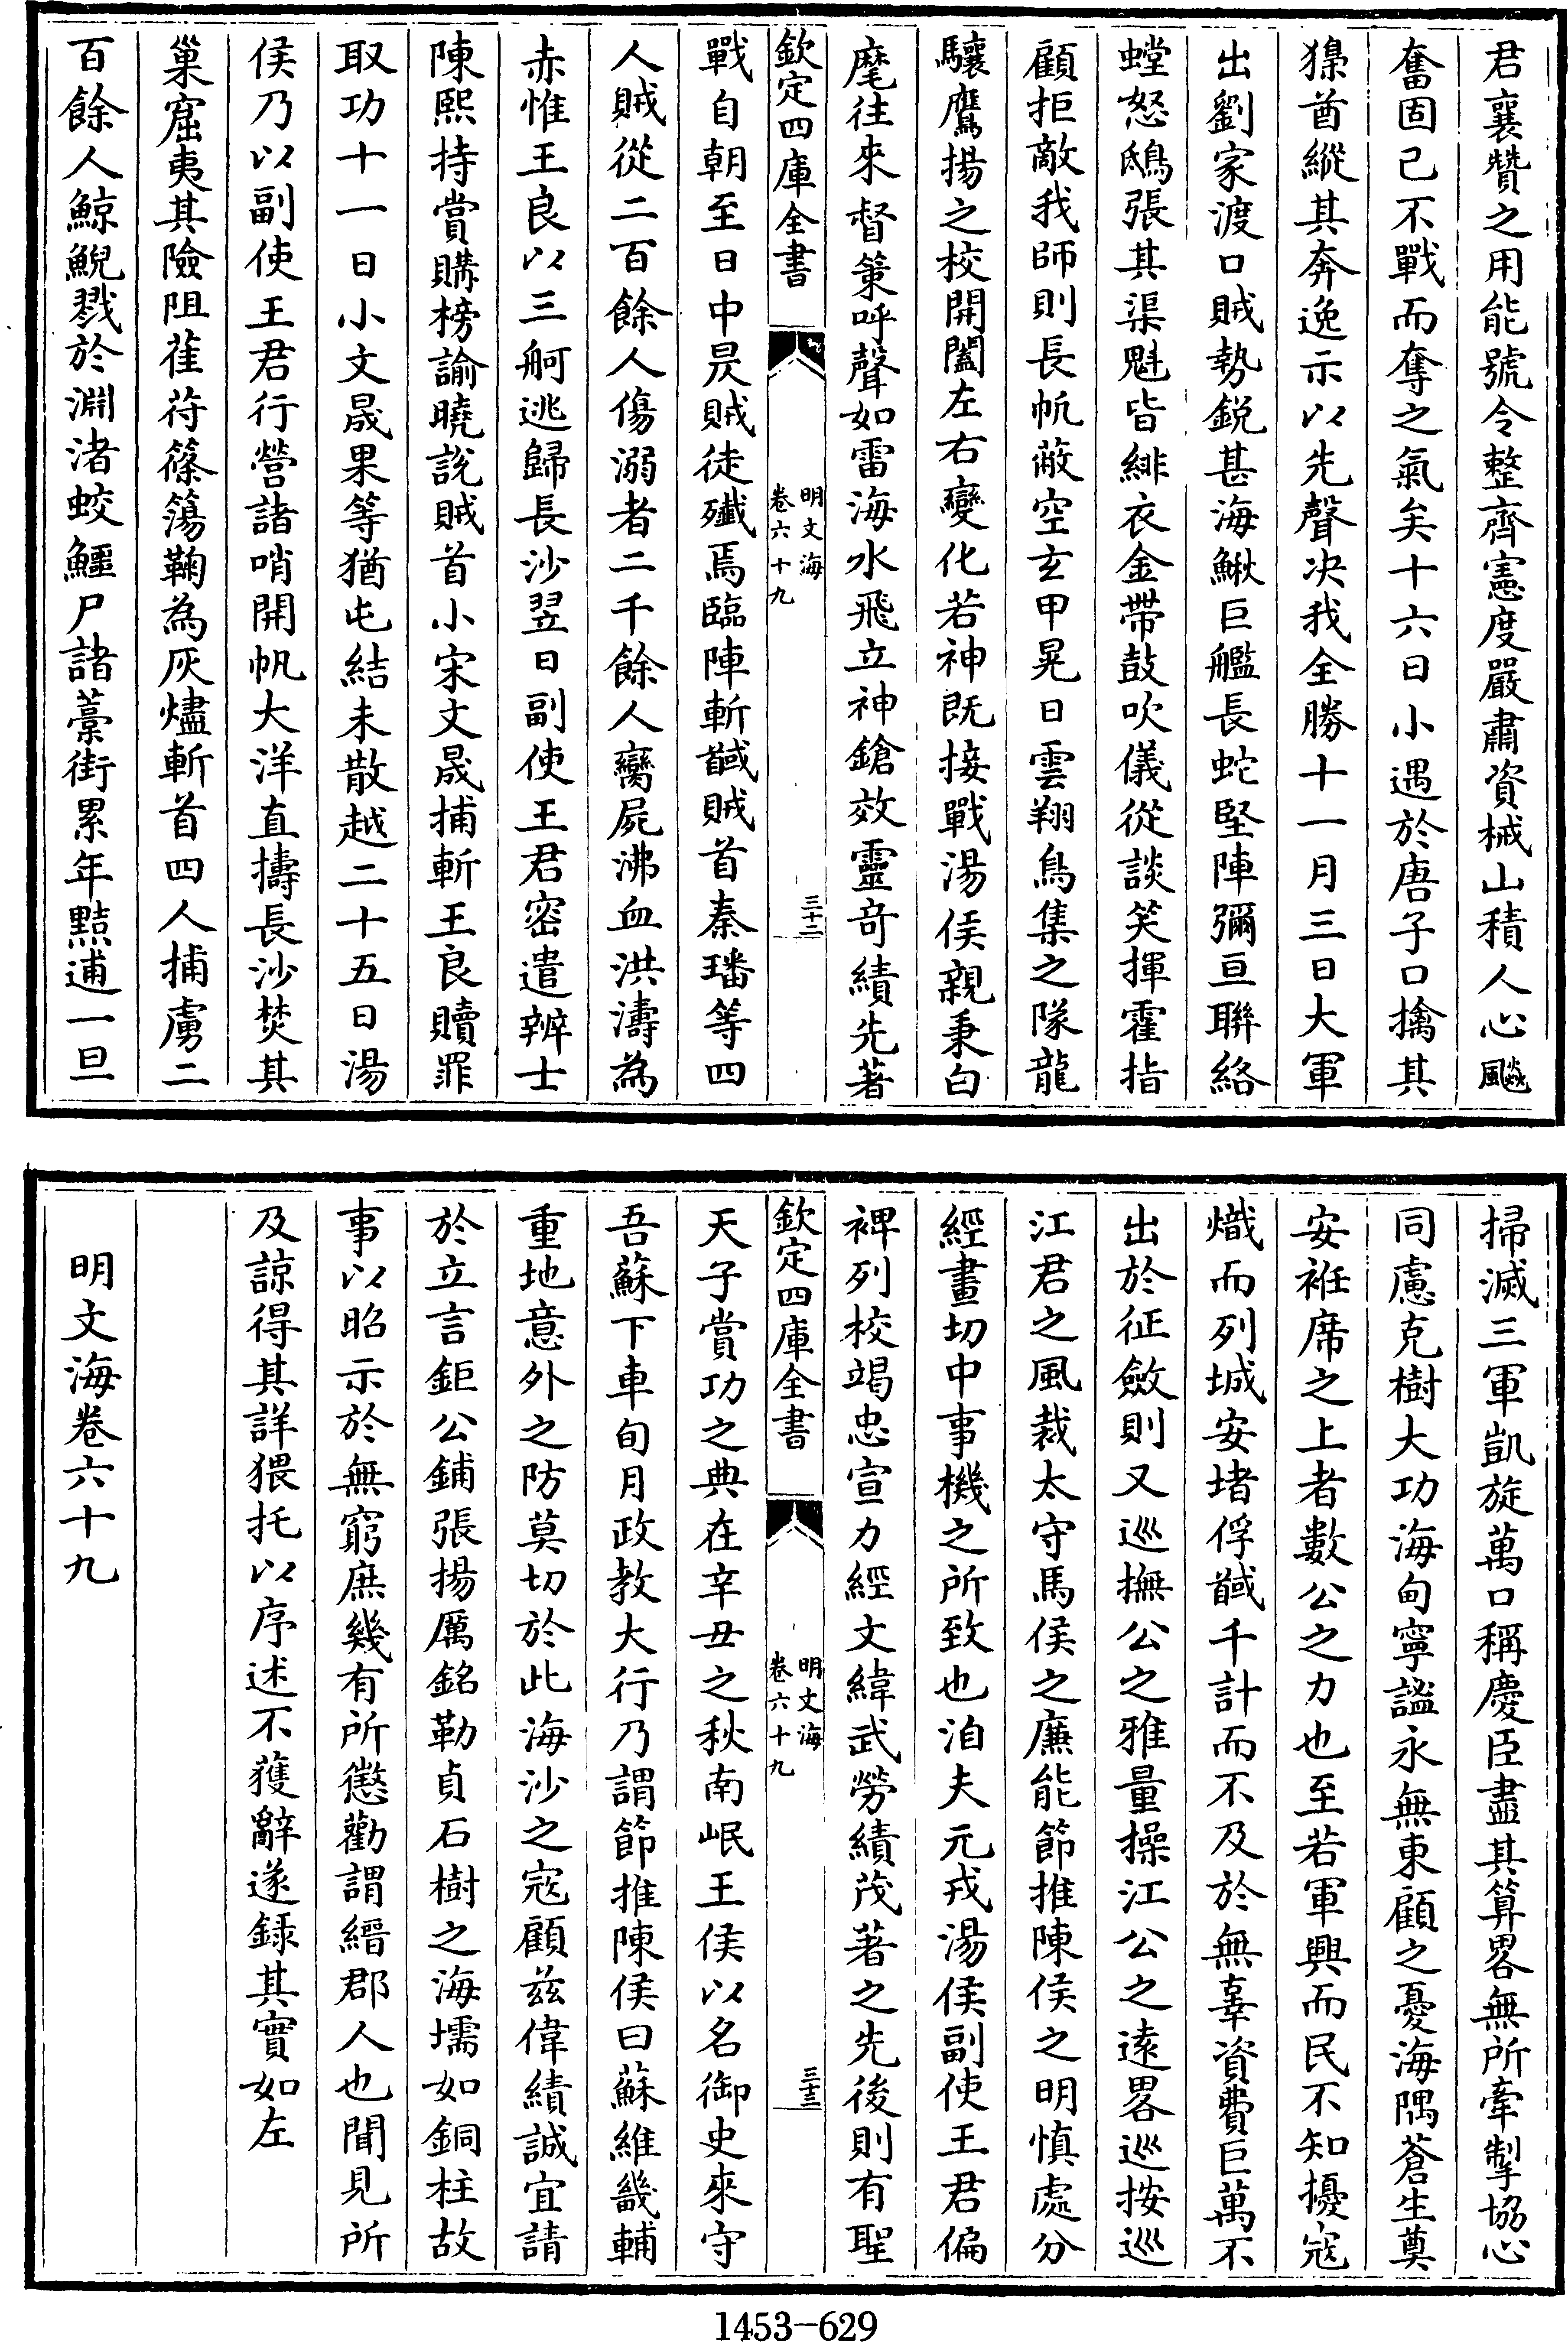 君襄贊之用能號令整齊憲度嚴肅資械山積人心飈
奮固已不戰而奪之氣矣十六日小遇於唐子口擒其
獍酋縱其奔逸示以先聲决我全勝十一月三日大軍
出劉家渡口賊勢銳甚海鰍巨艦長蛇堅陣彌亘聯絡
螳怒鴟張其渠魁皆緋衣金帶鼓吹儀從談笑揮霍指
顧拒敵我師則長帆蔽空玄甲晃日雲翔鳥集之隊龍
驤鷹揚之校開闔左右變化若神既接戰湯侯親秉白
麾往來督策呼聲如雷海水飛立神鎗效靈竒績先著
欽定四庫全書
明文海
卷六十九
三十二
戰自朝至日中昃賊徒殲焉臨陣斬馘賊首秦璠等四
人賊從二百餘人傷溺者二千餘人臠屍沸血洪濤為
赤惟王良以三舸逃歸長沙翌日副使王君密遣辨士
陳熙持賞購榜諭曉說賊首小宋文晟捕斬王良贖罪
取功十一日小文晟果等猶屯結未散越二十五日湯
侯乃以副使王君行營諸哨開帆大洋直擣長沙焚其
巢窟夷其險阻萑苻篠簜鞠為灰燼斬首四人捕虜二
百餘人鯨鯢戮於淵渚蛟鱷尸諸藁街累年黠逋一旦
掃滅三軍凱旋萬口稱慶臣盡其算畧無所牽掣協心
同慮克樹大功海甸寧謐永無東顧之憂海隅蒼生奠
安袵席之上者數公之力也至若軍興而民不知擾寇
熾而列城安堵俘馘千計而不及於無辜資費巨萬不
出於征斂則又巡撫公之雅量操江公之遠畧巡按巡
江君之風裁太守馬侯之㢘能節推陳侯之明慎處分
經畫切中事機之所致也洎夫元戎湯侯副使王君偏
裨列校竭忠宣力經文緯武勞績茂著之先後則有聖
欽定四庫全書
明文海
卷六十九
三十三
天子賞功之典在辛丑之秋南岷王侯以名御史來守
吾蘇下車旬月政教大行乃謂節推陳侯曰蘇維畿輔
重地意外之防莫切於此海沙之寇顧兹偉績誠宜請
於立言鉅公鋪張揚厲銘勒貞石樹之海壖如銅柱故
事以昭示於無窮庶幾有所懲勸謂縉郡人也聞見所
及諒得其詳猥托以序述不獲辭遂録其實如左
明文海卷六十九
1453-629